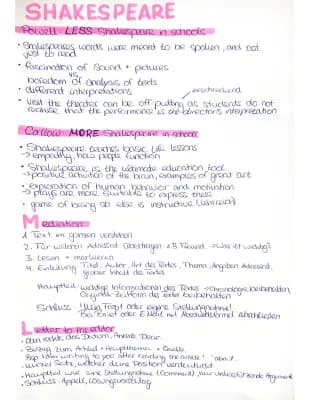 SHAKESPEARE
Powell LESS Shakespeare in schools
• Shakespeares words were meant to be spoken, and not
just to read
• fascination of sound + pictures
vs.
boredom of analysis of texts
• different interpretations
• visit the theater can be off putting as students do not
realise that the performance is the director's interpretation
Callow MORE Shakespeare in schools
• Shakespeare teaches basic life lessons
→ empathy, how people function
• Shakespeare is the ultimate education tool
→ positive activation of the brain, examples of great art
• exploration of human behavior and motivation
→ plays are more suitable to express these
• game of being sb else is instructive (lehrreich)
Mediation
1. Text im ganzen verstehen
2. Für welchen Adressat übertragen z.B. Freund → was ist wichtig?
3. Lesen + markieren
4. Einleitung: Titel, Autor, Art des Textes, Thema, Angaben Adressat,
grober Inhalt des Textes
Hauptteil: wichtige Informationen des Textes → Chronologie beibehalten,
Original Zeitform des Textes beibehalten
Schluss: kein Fazit oder eigene Stellungnahme!
Bei Brief oder E-Mail mit Abschiedsformel abschließen
Letter to the editor
• oben rechts das Datum, Anrede, Dear
• Bezug zum Artikel + Hauptthema + Quelle
Bsp. I am writing to you after reading the article "..." about...
• kurzer Satz, welcher deine Position verdeutlicht
• Hauptteil wie eine Stellungnahme (Comment), nur unbegründete Argumente
• Schluss: Appell, Lösungsvorschlag